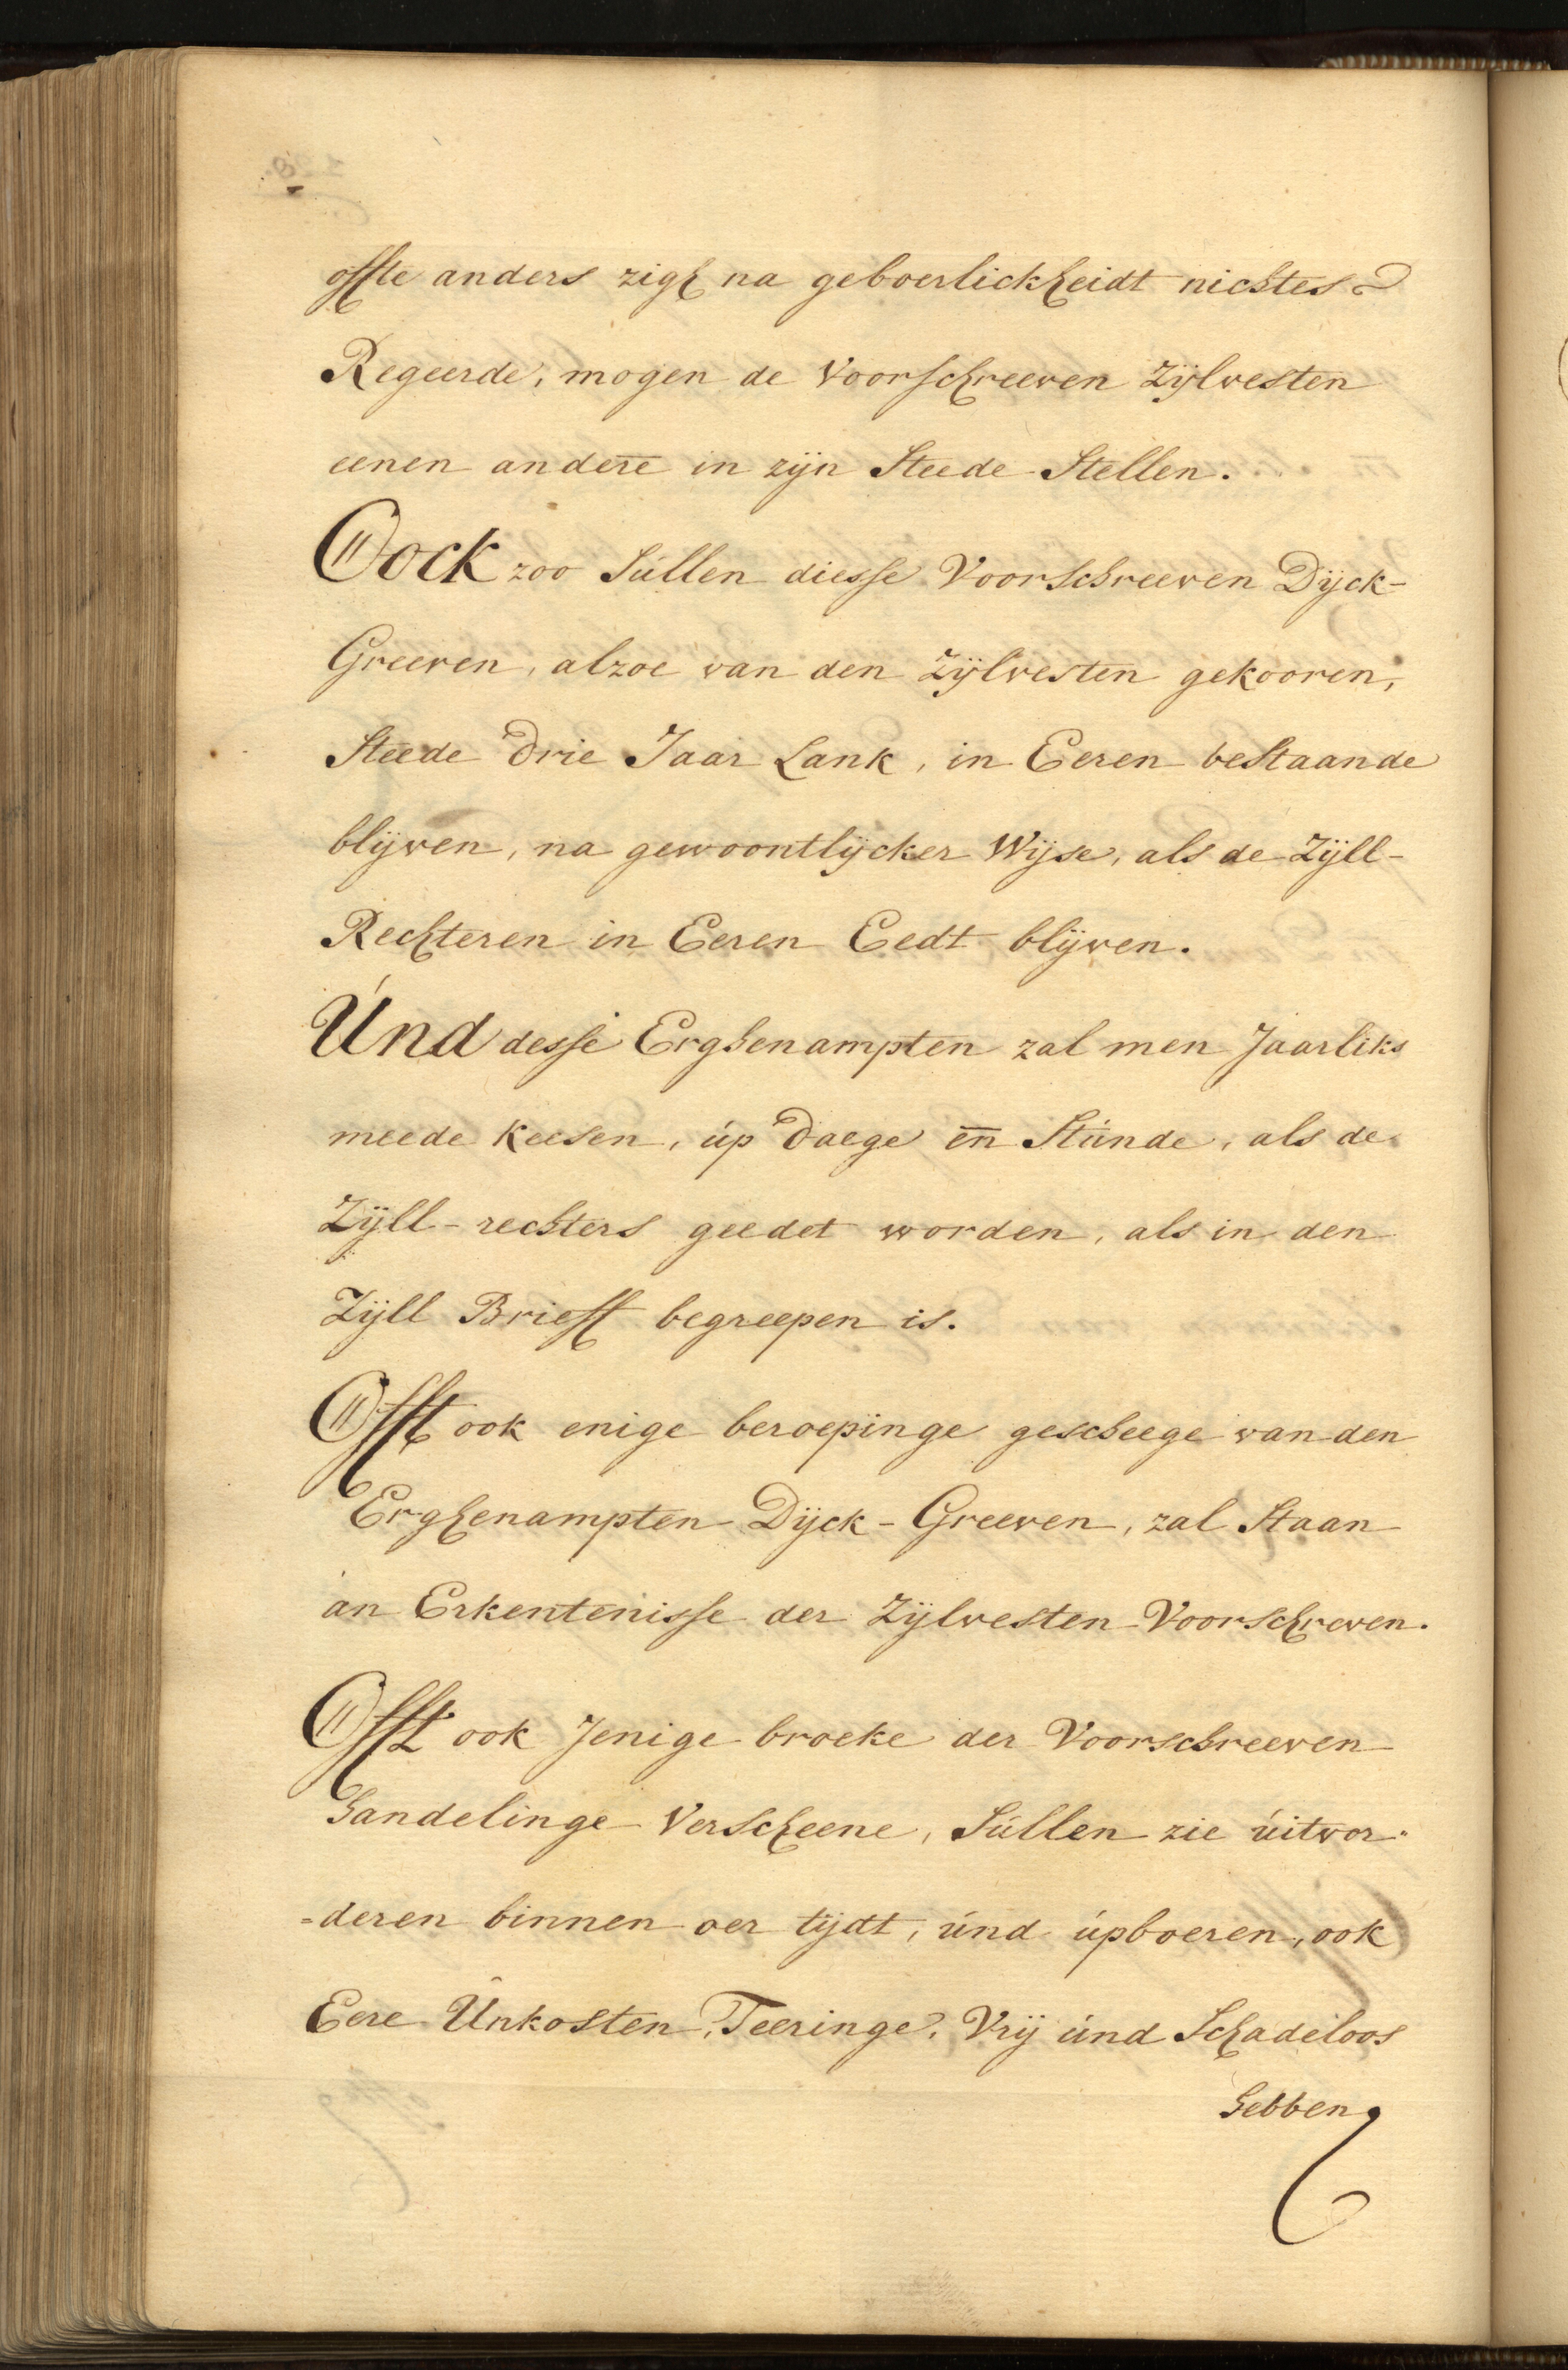 offte anders zigh na geboerlickheidt nichtes
Regeerde, mogen de Voorschreeven Zijlvesten
eenen andere in zijn Steede Stellen.
Oock zoo Súllen diesse Voorschreeven Dijck-
Greeven, alzoe van den Zijlvesten gekooren,
Steede drie Jaar Lank, in Eeren bestaande
blijven, na gewoontlijcker Wijse, als de Zijll-
Rechteren in Eeren Eedt blijven.
Únd desse Erghenampten zal men Jaarliks
meede keesen, úp daege en̄ Stúnde, als de
Zijll-rechters geedet worden, als in den
Zijll Brieff begreepen is.
Offt ook enige beroepinge gescheege van den
Erghenampten Dijck-Greeven, zal Staan
an Erkentenisse der Zijlvesten Voorschreven.
Offt ook Jenige broeke der Voorschreeven
handelinge Verscheene, Súllen zie úitvor-
=deren binnen oer tijdt, únd úpboeren, ook
Eere Únkosten, Teeringe, Vrij únd Schadeloos
hebben